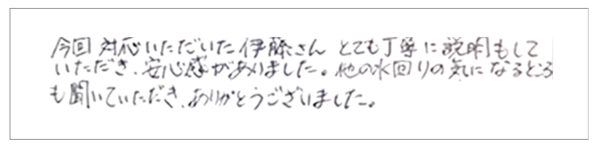 今回 対応いただいた伊藤さん とても丁寧に説明もして
いただき、安心感がありました。他の水回りの気になるところ
も聞いていただき、ありがとうございました。